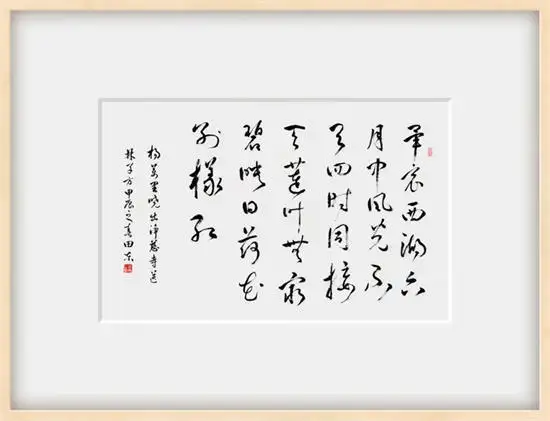 畢竟西湖六
月中风光不
与四时同接
天蓮叶無穷
碧映日荷花
别樣红
杨萬里晓出淨慈寺送
林子方甲辰之春田东